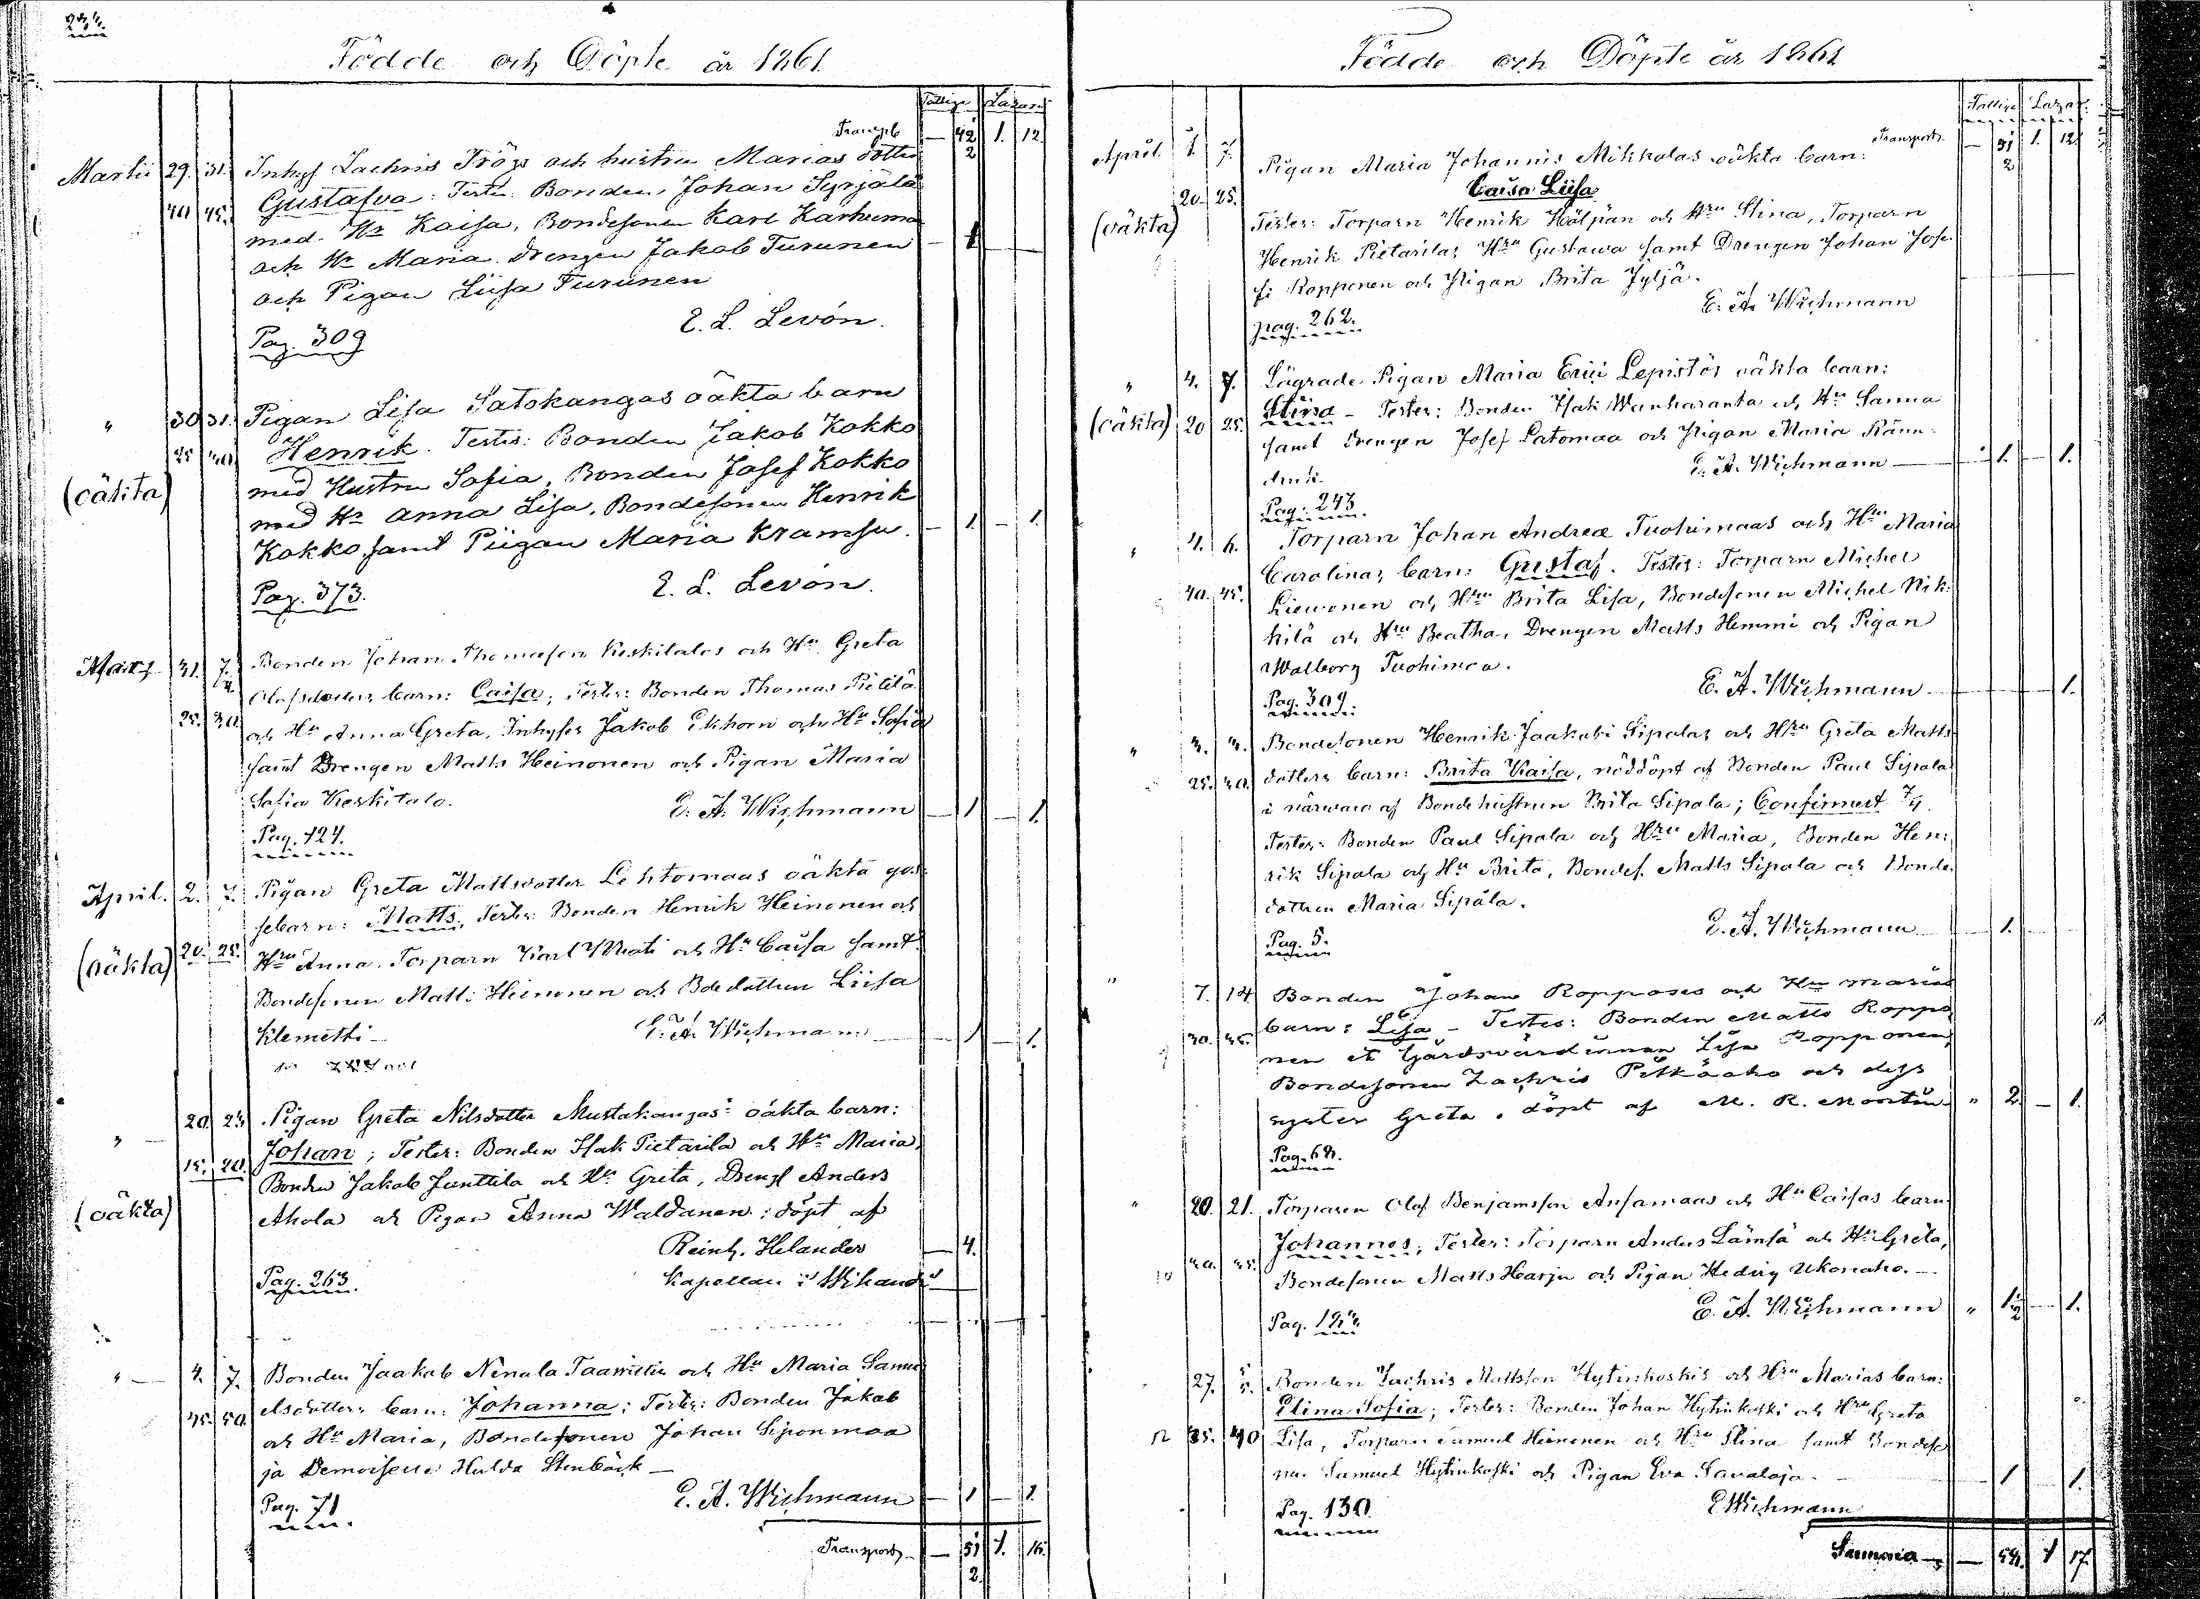 Födde och Döpte år 1861.
Fattige Lazar.
Transpt — 42 1. 12.
2
Martii 29. 31. Inhys Zachris Frögs och hustru Marias dotter
40 45. Gustafva. Test. Bonden Johan Syrjälä
med Hr Kaisa, Bondesonen Karl Karhuma
och Hr Maria. Drengen Jakob Turunen — 1
och Pigan Liisa Turunen
E. L. Levón.
Pag. 309
" 30 31. Pigan Lisa Satokangas oäkta barn
25 30. Henrik. Testis: Bonden Jakob Kokko
(oäkta) med Hustru Sofia, Bonden Josef Kokko
med Hr Anna Lisa, Bondesonen Henrik
Kokko samt Piigan Maria Kramsu. — 1. — 1.
E. L. Levón.
Pag. 373.
Mars 31. 7/4. Bonden Johan Thomasson Keskitalos och Hu Greta
Olofsdotters barn: Caisa; Testes: Bonden Thomas Pietilä
25. 30. och Hu Anna Greta, Inhyses Jakob Ekhorn och Hu Sofia
samt Drengen Matts Heinonen och Pigan Maria
Sofia Keskitalo.
E. A. Wichmann — 1 — 1.
Pag. 124.
April. 2. 7. Pigan Greta Mattsdotter Lehtomaas oäkta gos-
sebarn: Matts, Testes: Bonden Henrik Heinonen och
(oäkta) 20. 25. Hru Anna. Torparn Karl och Hu Caisa samt
Bondesonen Matts Heinonen och Bdedottren Liisa
Klemetti
E. A. Wichmann — 1 — 1.
" — 20. 23. Pigan Greta Nilsdotter Mustakangas' oäkta barn:
15. 20. Johan; Testes: Bonden Isak Pietarila och Hu Maria,
Bonden Jakob Junttila och Hu Greta, Drengl Anders
(oäkta) Ahola och Pigan Anna Waldanen: döpt af
Reinh. Helander — 4.
Kapellan i
Pag. 263.
" — 4. 7. Bonden Jaakab Nenala Taavittis och Hu Maria Samu-
45. 50. elsdotters barn: Johanna; Testes: Bonden Jakob
och Hu Maria, Bondesonen Johan Siponmaa
ja Demoiselle Hulda Stenbäck —
E. A. Wichmann — 1 — 1.
Pag. 71
Transport — 51 1. 16.
2.
Födde och Döpte år 1861
Fattige Lazar.
Transport — 51 1. 12.
2
April. 1. 7. Pigan Maria Johannis Mikkolas oäkta barn:
20. 25. Caisa Liisa
(oäkta) Testes: Torparn Henrik Hälpän och Hru Stina, Torparn
Henrik Pietarilas Hru Gustawa samt Drengen Johan Jose-
fi Ropponen och Pigan Brita Jyljä.
E. A. Wichmann
pag. 262.
" 4. 7. Lägrade Pigan Maria Erici Lepistös oäkta barn:
(oäkta) 20 25. Stina — Testes: Bonden Isak Wanharanta och Hu Sanna
samt Drengen Josef Latomaa och Pigan Maria
E. A. Wichmann — 1. — 1.
Pag. 243
" 4. 6. Torparn Johan Andreæ Tuohimaas och Hru Maria
Carolinas barn: Gustaf. Testes: Torparn Michel
40. 45. Kiewonen och Hru Brita Lisa, Bondesonen Michel Nik-
kilä och Hru Beatha, Drengen Matts Hemmi och Pigan
Walborg Tuohimaa.
E. A. Wichmann — 1.
Pag. 309.
" 3. 3. Bondesonen Henrik Jaakobi Sipalas och Hru Greta Matts-
25. 30. dotters barn: Brita Kaisa, nöddöpt af Bonden Paul Sipala
i närwaro af Bondehustrun Brita Sipala; Confirmert 7/4.
Testes: Bonden Paul Sipala och Hru Maria, Bonden Hen-
rik Sipala och Hu Brita, Bondes. Matts Sipala och Bonde-
dottren Maria Sipala.
E. A. Wichmann — 1.
Pag. 5.
" 7. 14 Bonden Johan Ropposes och Hu Marias
30. 35. barn: Lisa — Testes: Bonden Matts Roppo-
nen et Gårdsvärdinnan Lisa Ropponen,
Bondesonen Zachris Pitkäaho och dess
syster Greta. döpt af M. R. Montin. " 2. — 1.
Pag. 68.
" 20. 21. Torparen Olof Benjamsson Ansamaas och Hu Caisas barn
Johannes; Testes: Torparn Anders Lämsä och Hu Greta,
30. 35. Bondesonen Matts Harju och Pigan Hedvig Ukonaho. —
E. A. Wichmann " 1½ — 1.
27. 5/5. Bonden Zachris Mattsson Hytinkoskis och Hru Marias barn:
Elina Sofia; Testes: Bonden Johan Hytinkoski och Hru Greta
35. 40 Lisa, Torparn Samuel Heinonen och Hru Stina samt Bondeso-
nen Samuel Hytinkoski och Pigan Eva Savaloja. — 1 1.
E Wichmann
Pag. 130
Summa — 59. 1 17.